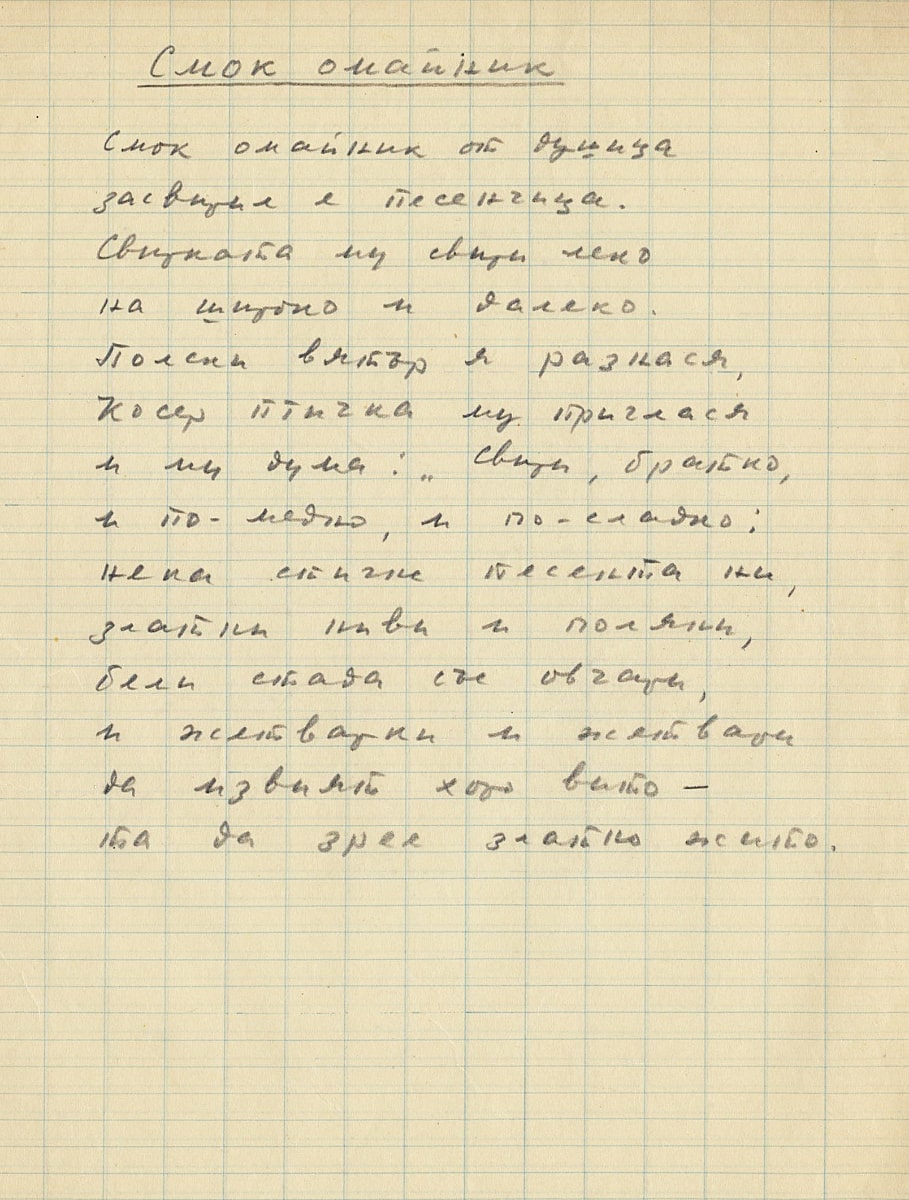 Смок омайник
Смок омайник от душица
засвирил е песенчица.
Свирката му свири леко
на широко и далеко.
Полски вятър я разнася,
Косер птичка му приглася
и му дума: „Свири, братко,
и по-медно, и по-сладко;
нека стигне песента ни,
златни ниви и поляни,
бели стада със овчари,
и жетварки и жетвари
да извият хоро вито —
та да зрее златно жито.